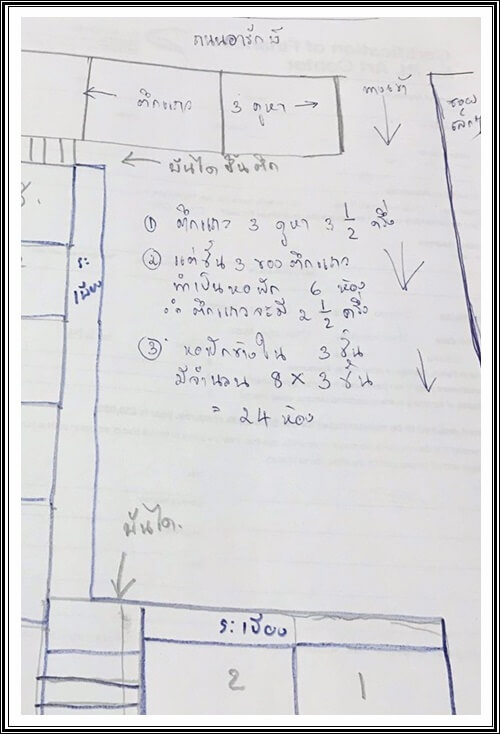 ถนนอารักษ์
ตึกแถว 3 คูหา
ทางเข้า
ซอย
เล็กๆ
บันไดขึ้นตึก
① ตึกแถว 3 คูหา 3 1/2 ชั้น
② แต่ชั้น 3 ของตึกแถว
ทำเป็นหอพัก 6 ห้อง
∴ ตึกแถวจะมี 2 1/2 ชั้น
③ หอพักข้างใน 3 ชั้น
มีจำนวน 8 × 3 ชั้น
= 24 ห้อง
ระ
เบียง
บันได.
ระเบียง
2 1